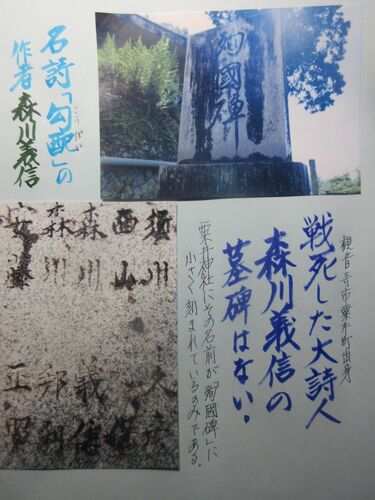 名詩「勾配」の
こうばい
作者 森川義信
殉國碑
観音寺市粟井町出身
戦死した大詩人
森川義信の
墓碑はない。
粟井神社にその名前が「殉國碑」に
小さく刻まれているのみである。
須川
西山
森川 義信
森川
安藤